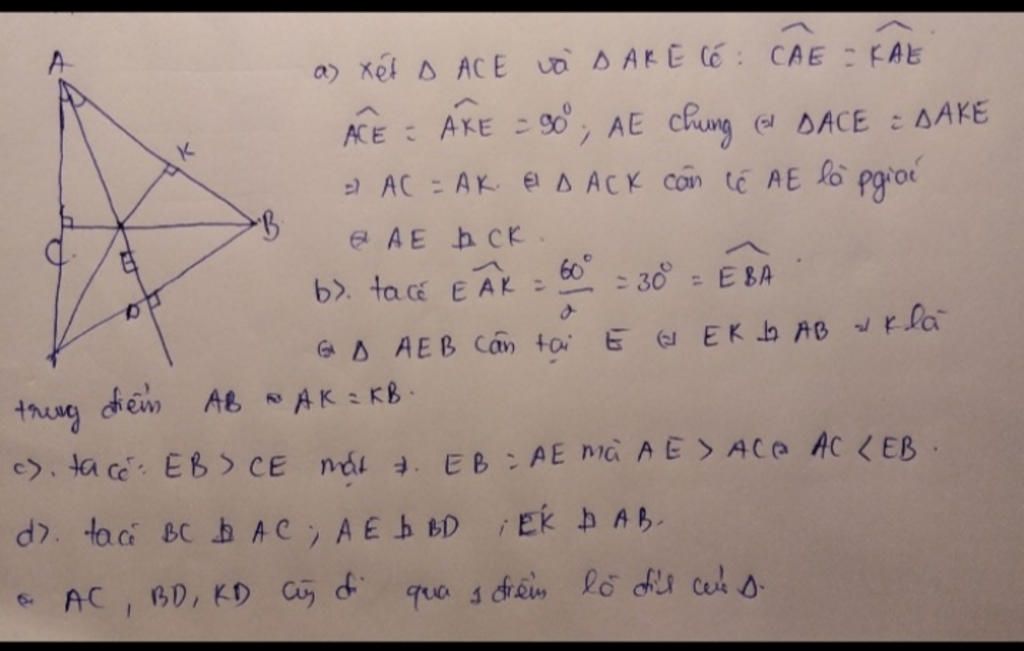 A
K
B
C
E
D
a) xét Δ ACE và Δ AKE có: CAE = KAE
ACE = AKE = 90°; AE chung ⇒ ΔACE = ΔAKE
⇒ AC = AK ⇒ Δ ACK cân có AE là pgiác
⇒ AE ⊥ CK.
b). ta có EAK = 60°/2 = 30° = EBA
⇒ Δ AEB cân tại E ⇒ EK ⊥ AB ⇒ K là
trung điểm AB ⇒ AK = KB.
c). ta có: EB > CE mặt ≠. EB = AE mà AE > AC ⇒ AC < EB.
d). ta có BC ⊥ AC; AE ⊥ BD; EK ⊥ AB.
⇒ AC, BD, KD cùng đi qua 1 điểm là của Δ.